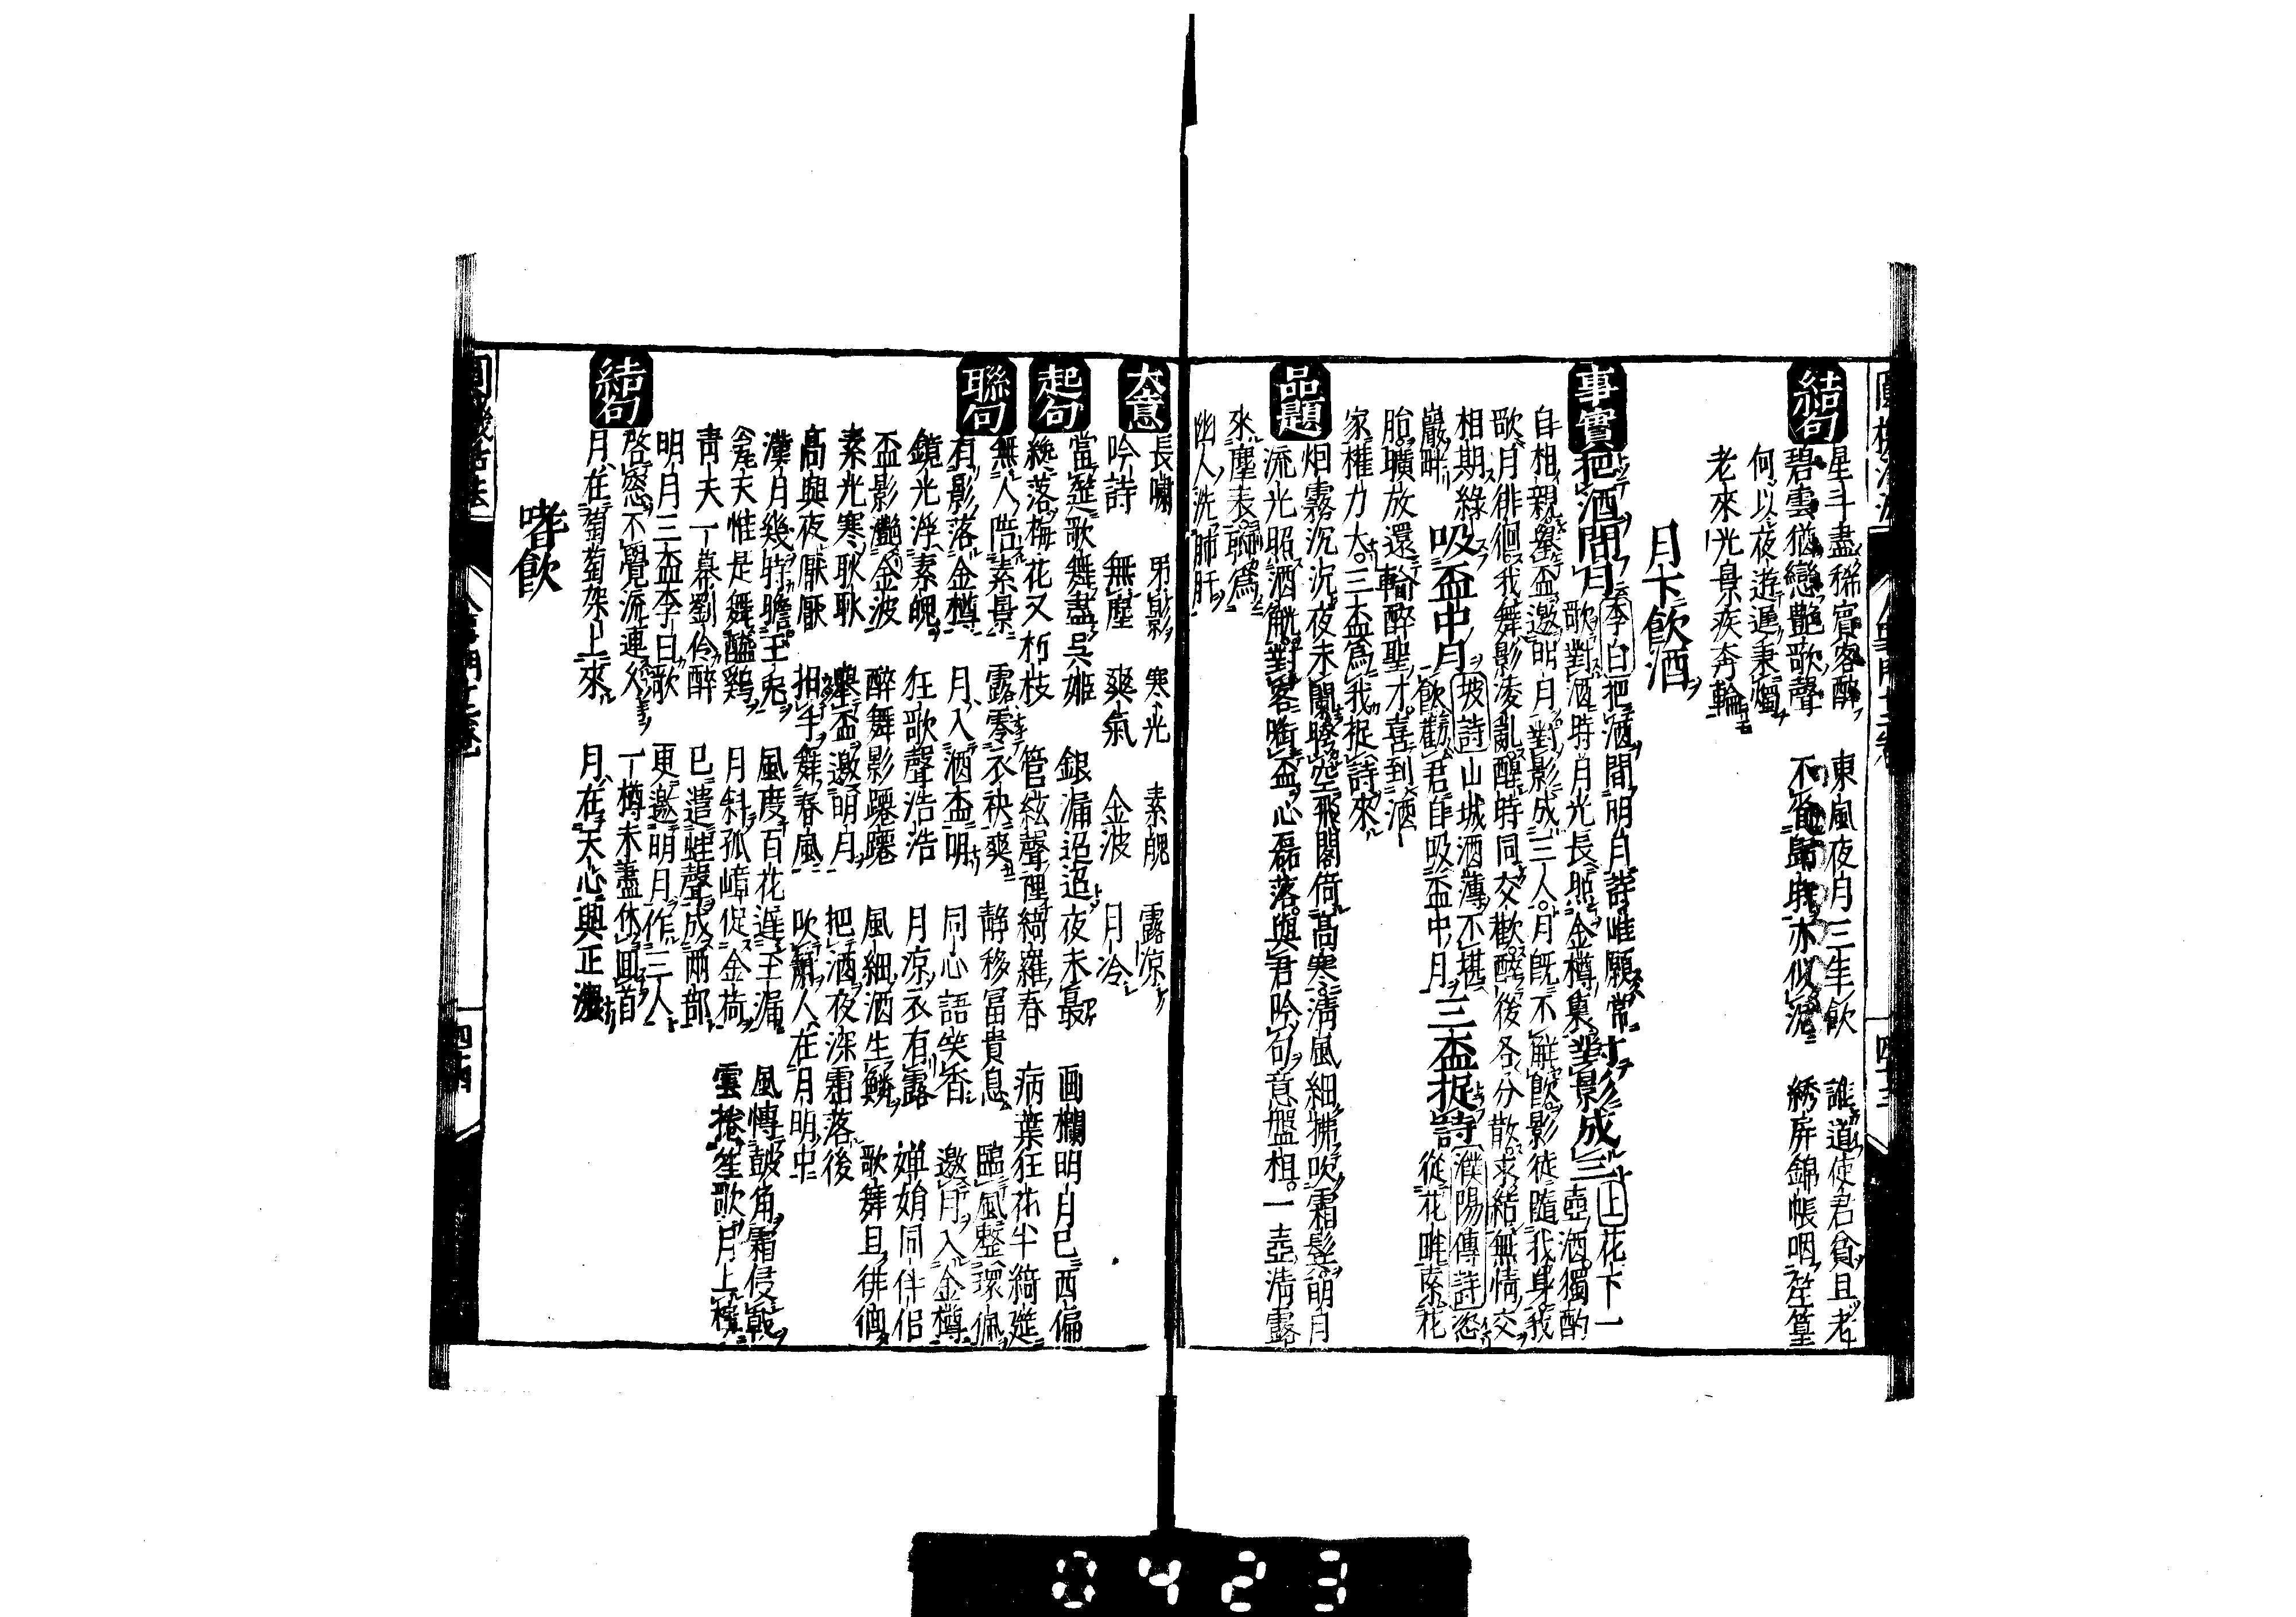 結句
星斗盡稀賓客醉　東風夜月三年飲　誰道使君貧且老
碧雲猶戀艷歌聲　不省歸時亦似泥　綉屏錦帳咽笙篁
何以夜遊遲秉燭
老來光景疾奔輪
月下飲酒
事實
把酒問月　李白把酒問明月詩唯願常
歌對酒時月光長照金樽裏
對影成三　上花下一
壺酒獨酌
自相親舉盃邀明月對影成三人月既不解飲影徒隨我身我
歌月徘徊我舞影凌亂醒時同交歡醉後各分散永結無情交
相期綠
巖畔
吸盃中月　坡詩山城酒薄不堪
飲勸君自吸盃中月
三盃捉詩　濮陽傳詩恣
從花畔索花
胎曠放還輪醉聖才喜到酒
家權力大三盃為我捉詩來
品題
烟霧沉沉夜未闌瞻空飛閣倚高寒清風細拂吹霜髮明月
流光照酒觥對客晦盃心磊落與君吟句意盤桓一壺清露
來塵表歸為
幽人洗肺肝
大意
長嘯　弄影　寒光　素魄　露涼
吟詩　無塵　爽氣　金波　月冷
起句
當筵歌舞盡吳姬　銀漏迢迢夜未最　画欄明月已西偏
纔落梅花又柘枝　管絃聲裡綺羅春　病葉狂花半綺筵
聯句
無人階素景　露零衣袂爽　靜移富貴息　臨風整環佩
有影落金樽　月入酒盃明　同心語笑香　邀月入金樽
鏡光浮素魄　狂歌聲浩浩　月涼衣有露　嬋娟同伴侶
盃影灩金波　醉舞影躚躚　風細酒生鱗　歌舞且徘徊
素光寒耿耿　舉盃邀明月　把酒夜深霜落後
高興夜厭厭　招手舞春風　吹簫人在月明中
漢月幾時瞻玉兔　風度百花遲玉漏　風傳鼓角霜侵戟
天惟是舞醯鷄　月斜孤嶂促金荷　雲捲笙歌月上樓
青天一幕劉伶醉　已遣蛙聲成兩部
明月三盃李白歌　更邀明月作三人
結句
啓窓不覺流連久　一樽未盡休回首
月在葡萄架上來　月在天心與正濃
嗜飲
四十三
四十四
0423